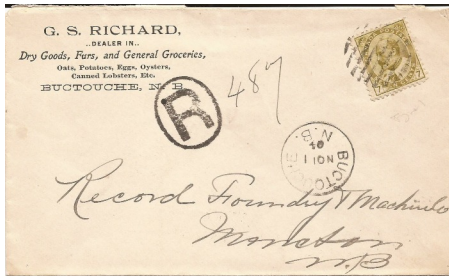 G. S. RICHARD,
..DEALER IN..
Dry Goods, Furs, and General Groceries,
Oats, Potatoes, Eggs, Oysters,
Canned Lobsters, Etc.
BUCTOUCHE, N. B.
R
487
7 7
BUCTOUCHE
NO 11
04
N.B.
Record Foundry & Machine Co
Moncton
N.B